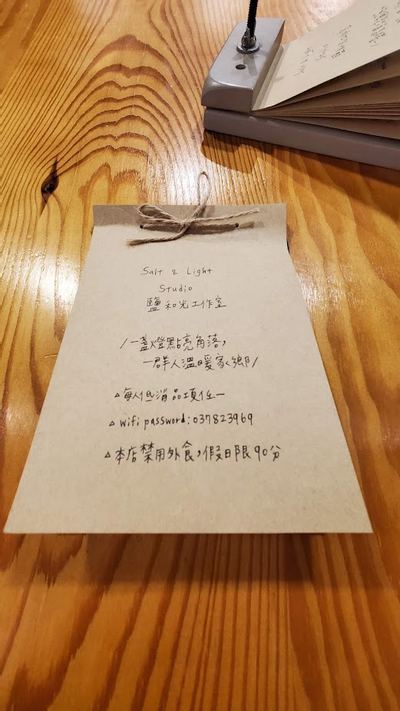 Salt & Light
Studio
鹽和光工作室
/一盞燈點亮角落,
一群人溫暖家鄉/
△每人低消品項任一
△wifi password:037823969
△本店禁用外食,假日限90分